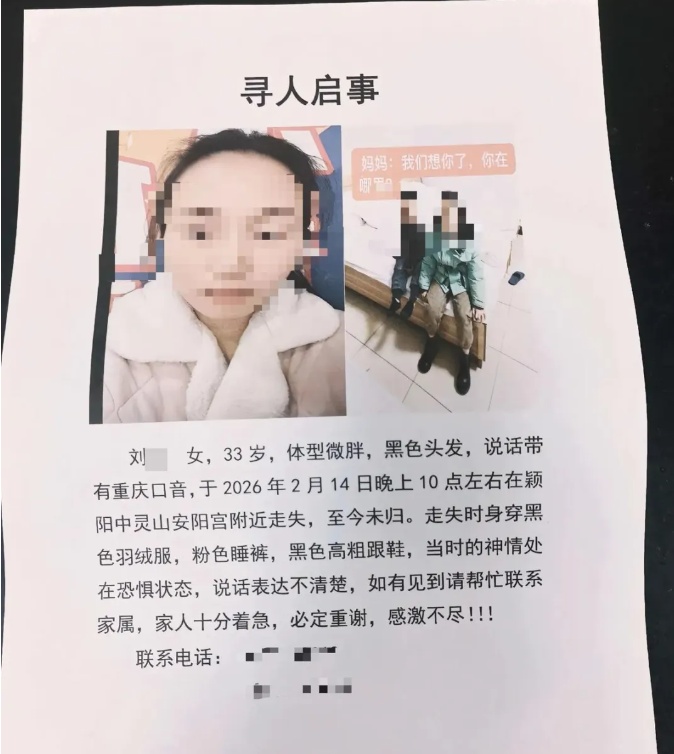 寻人启事
妈妈：我们想你了，你在
哪里？
刘 女，33岁，体型微胖，黑色头发，说话带
有重庆口音，于2026年2月14日晚上10点左右在颖
阳中灵山安阳宫附近走失，至今未归。走失时身穿黑
色羽绒服，粉色睡裤，黑色高粗跟鞋，当时的神情处
在恐惧状态，说话表达不清楚，如有见到请帮忙联系
家属，家人十分着急，必定重谢，感激不尽!!!
联系电话：